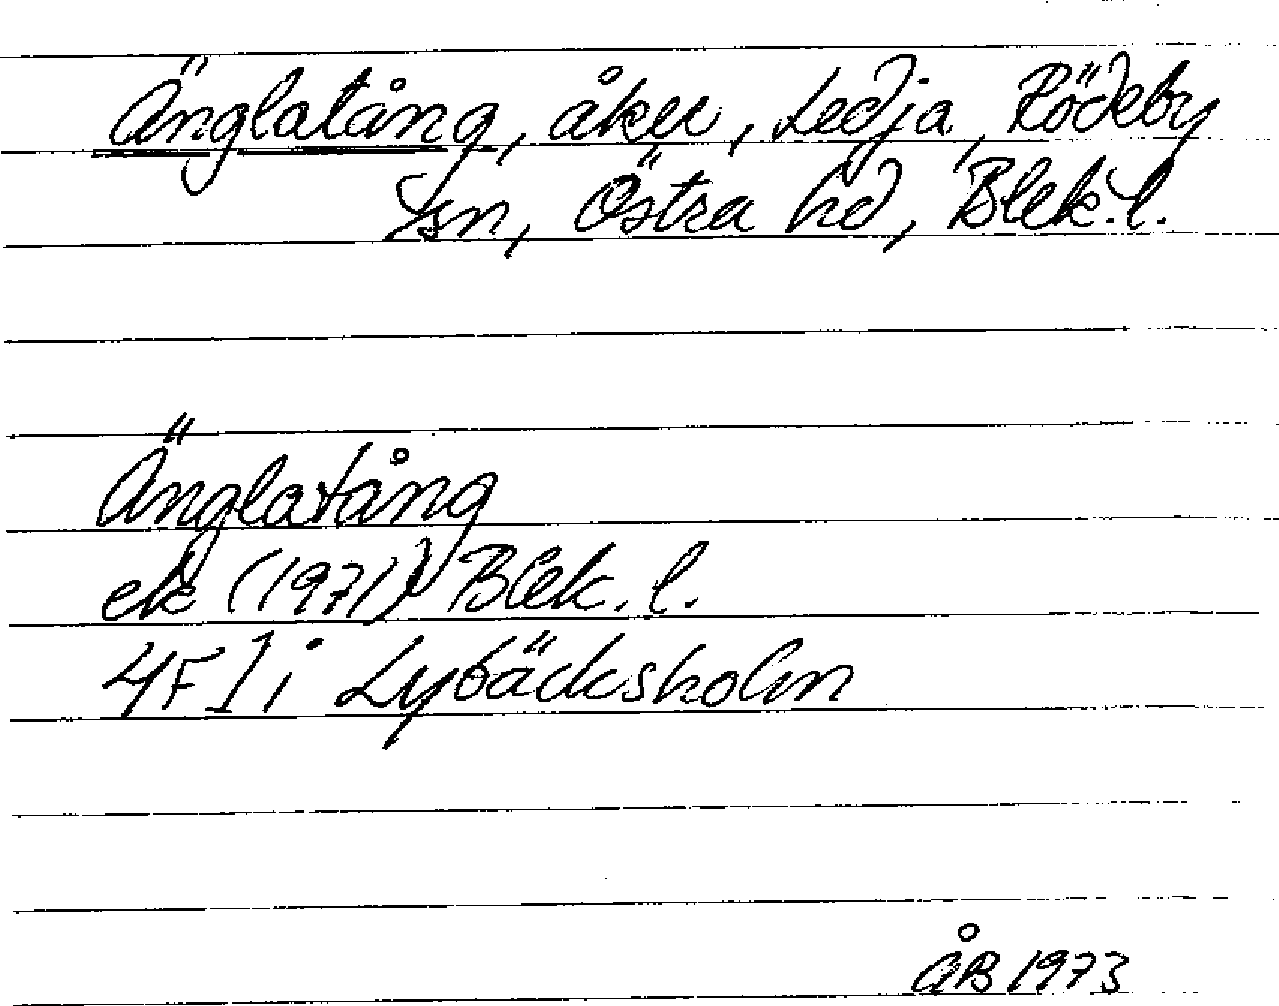 Änglatång, åker, Ledja, Rödeby
sn, Östra hd, Blek. l.
Änglatång
ek (1971) Blek. l.
4F1i Lybäcksholm
ÅB 1973